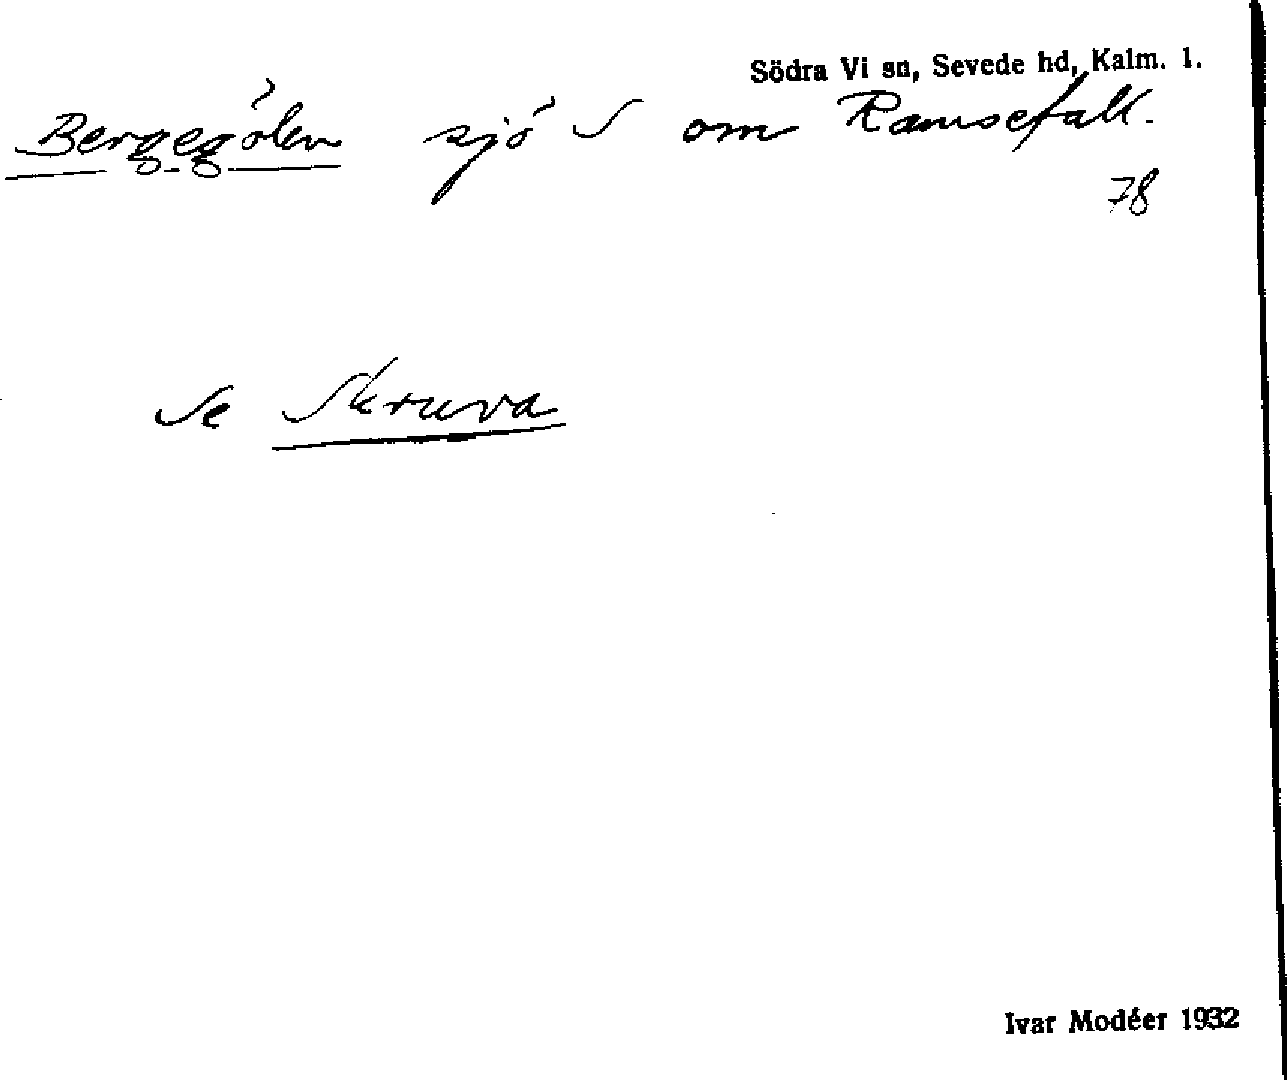 Södra Vi sn, Sevede hd, Kalm. l.
Bergegölen sjö S om Ramsefall.
78
Se Skruva
Ivar Modéer 1932